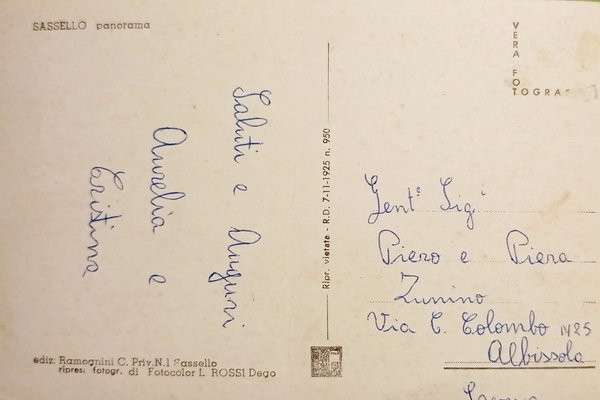 SASSELLO panorama
VERA FOTOGRA
Saluti e Auguri
Aurelia e
Cristina
Ripr. vietata - R.D. 7-11-1925 n. 950
Gent.ⁱ Sig.ⁱ
Piero e Piera
Zunino
Via C. Colombo N 25
Albissola
ediz. Ramognini C. Priv. N.1 Sassello
ripresi fotogr. di Fotocolor L. ROSSI Dego